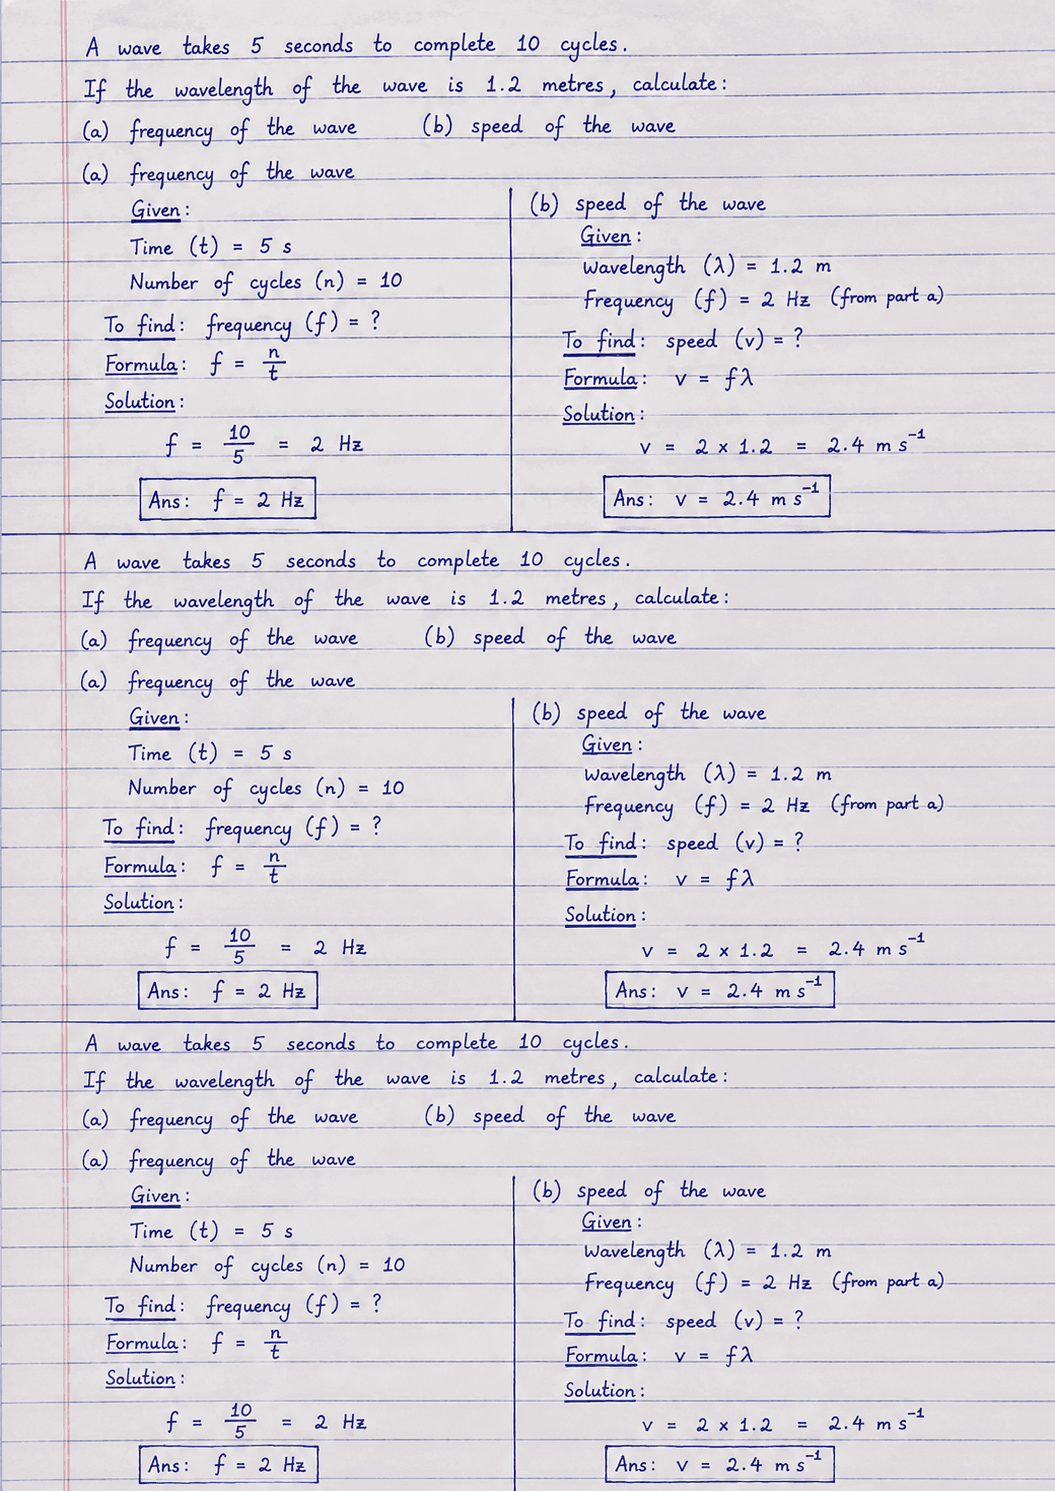 A wave takes 5 seconds to complete 10 cycles.
If the wavelength of the wave is 1.2 metres, calculate:
(a) frequency of the wave (b) speed of the wave
(a) frequency of the wave
Given:
Time (t) = 5 s
Number of cycles (n) = 10
To find: frequency (f) = ?
Formula: f = n/t
Solution:
f = 10/5 = 2 Hz
Ans: f = 2 Hz
(b) speed of the wave
Given:
Wavelength (λ) = 1.2 m
Frequency (f) = 2 Hz (from part a)
To find: speed (v) = ?
Formula: v = fλ
Solution:
v = 2 × 1.2 = 2.4 m s⁻¹
Ans: v = 2.4 m s⁻¹
A wave takes 5 seconds to complete 10 cycles.
If the wavelength of the wave is 1.2 metres, calculate:
(a) frequency of the wave (b) speed of the wave
(a) frequency of the wave
Given:
Time (t) = 5 s
Number of cycles (n) = 10
To find: frequency (f) = ?
Formula: f = n/t
Solution:
f = 10/5 = 2 Hz
Ans: f = 2 Hz
(b) speed of the wave
Given:
Wavelength (λ) = 1.2 m
Frequency (f) = 2 Hz (from part a)
To find: speed (v) = ?
Formula: v = fλ
Solution:
v = 2 × 1.2 = 2.4 m s⁻¹
Ans: v = 2.4 m s⁻¹
A wave takes 5 seconds to complete 10 cycles.
If the wavelength of the wave is 1.2 metres, calculate:
(a) frequency of the wave (b) speed of the wave
(a) frequency of the wave
Given:
Time (t) = 5 s
Number of cycles (n) = 10
To find: frequency (f) = ?
Formula: f = n/t
Solution:
f = 10/5 = 2 Hz
Ans: f = 2 Hz
(b) speed of the wave
Given:
Wavelength (λ) = 1.2 m
Frequency (f) = 2 Hz (from part a)
To find: speed (v) = ?
Formula: v = fλ
Solution:
v = 2 × 1.2 = 2.4 m s⁻¹
Ans: v = 2.4 m s⁻¹